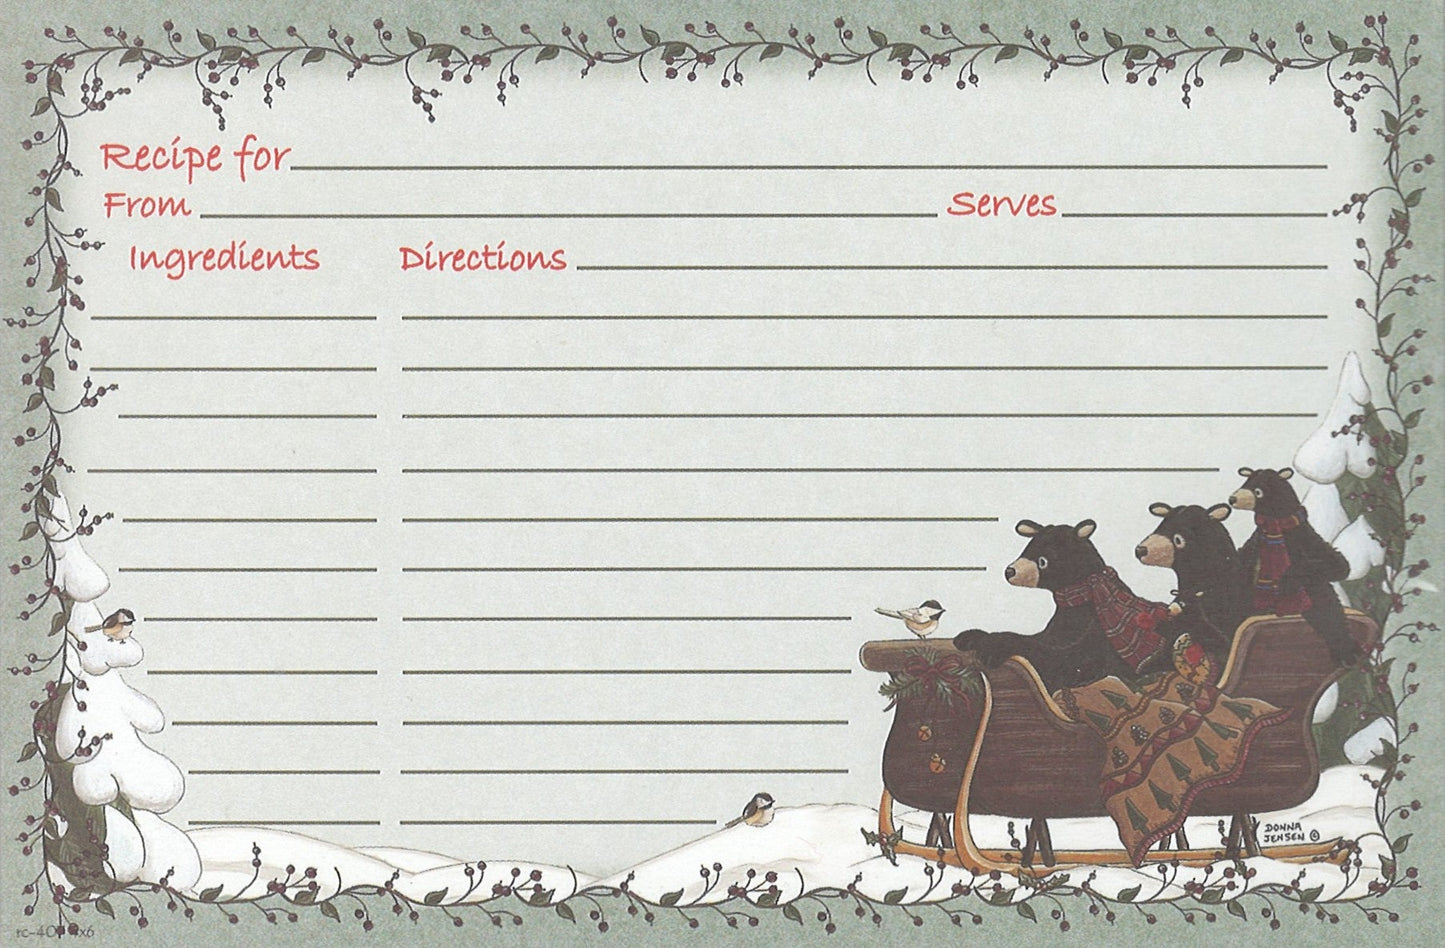 Recipe for
From Serves
Ingredients Directions
DONNA
JENSEN ©
4x6